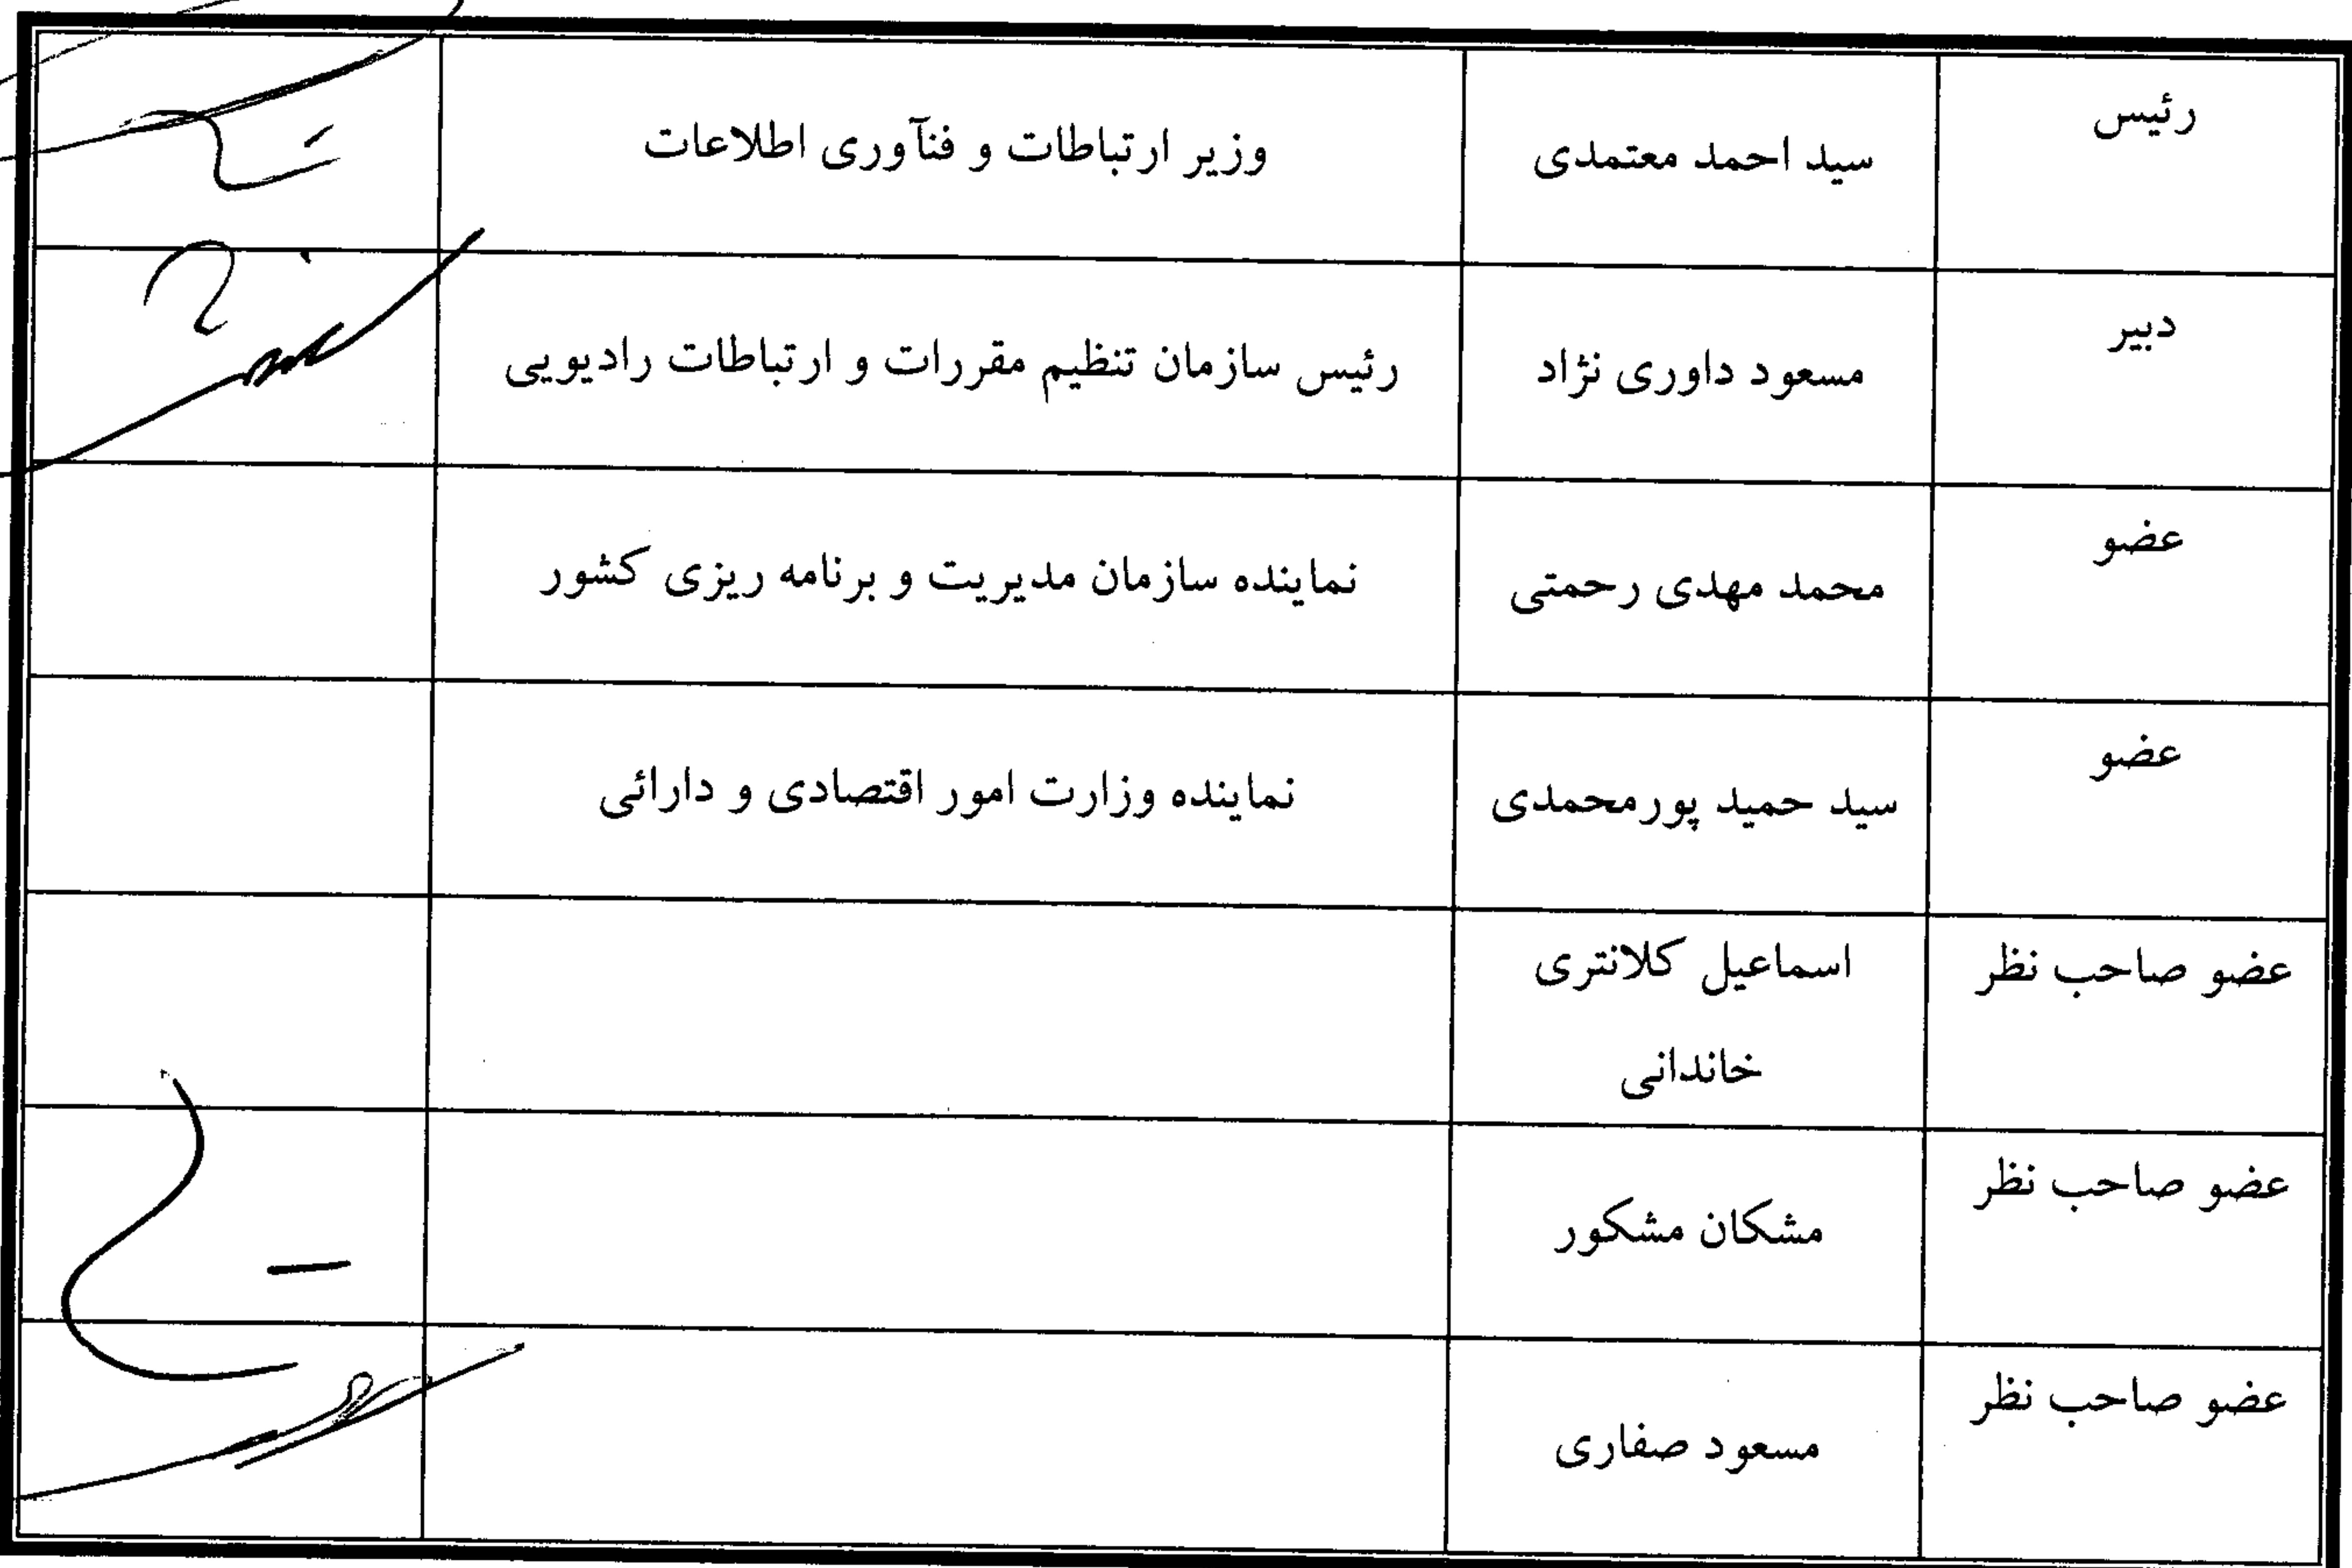 رئیس
سید احمد معتمدی
وزیر ارتباطات و فنآوری اطلاعات
دبیر
مسعود داوری نژاد
رئیس سازمان تنظیم مقررات و ارتباطات رادیویی
عضو
محمد مهدی رحمتی
نماینده سازمان مدیریت و برنامه ریزی کشور
عضو
سید حمید پورمحمدی
نماینده وزارت امور اقتصادی و دارائی
عضو صاحب نظر
اسماعیل کلانتری
خاندانی
عضو صاحب نظر
مشکان مشکور
عضو صاحب نظر
مسعود صفاری